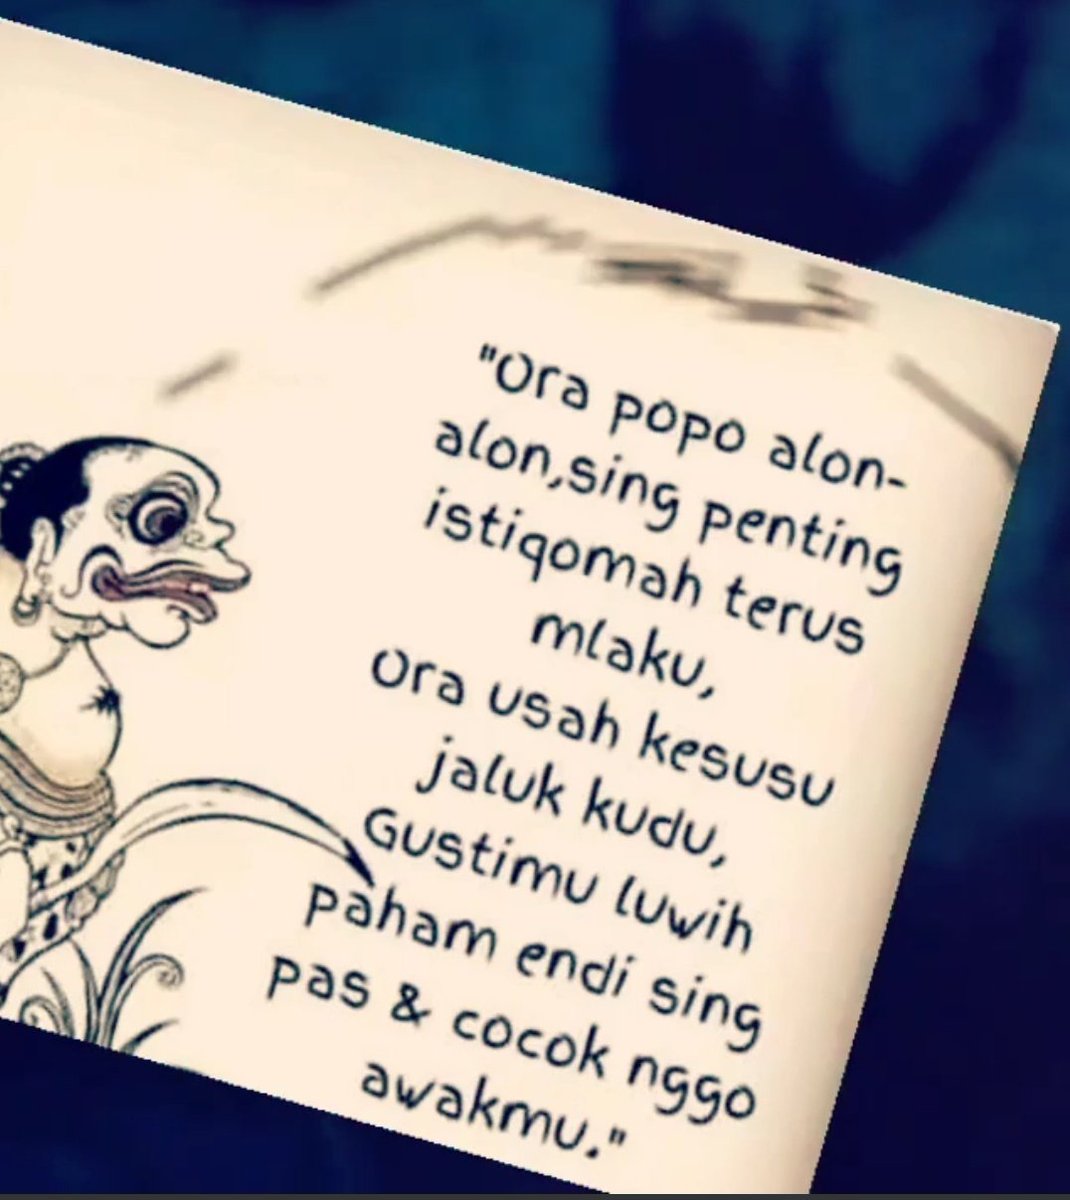 "Ora popo alon-
alon,sing penting
istiqomah terus
mlaku,
Ora usah kesusu
jaluk kudu,
Gustimu luwih
paham endi sing
pas & cocok nggo
awakmu."